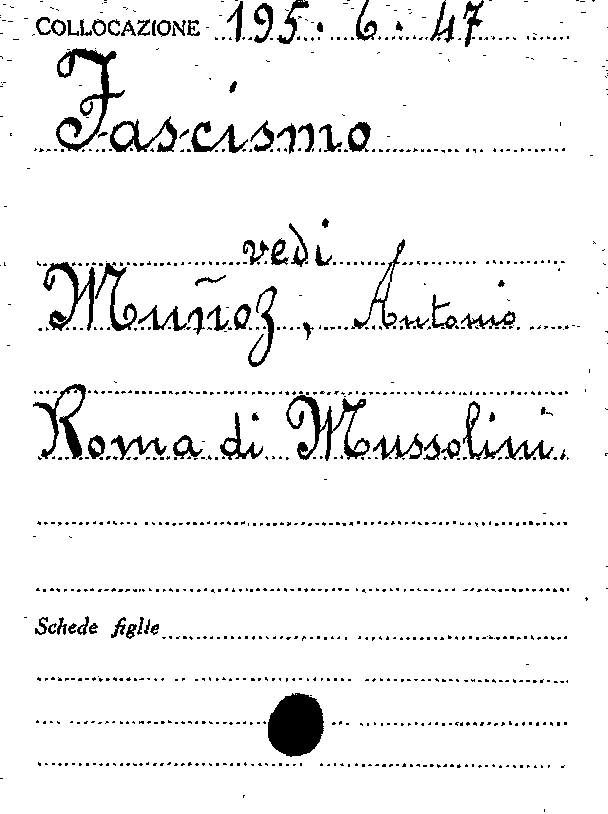 COLLOCAZIONE 195. 6. 47
Fascismo
vedi
Muñoz, Antonio
Roma di Mussolini.
Schede figlie